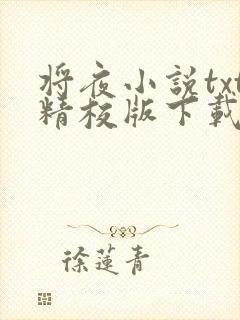 将夜小説txt
精校版下載
徐蓮青